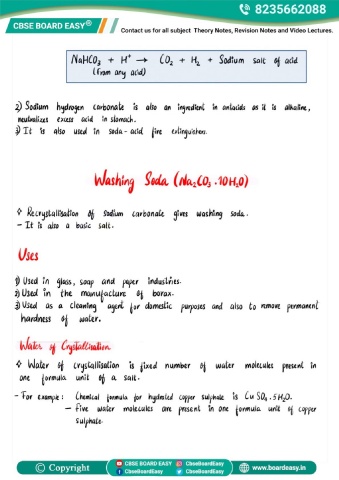 8235662088
CBSE BOARD EASY®
Contact us for all subject Theory Notes, Revision Notes and Video Lectures.
NaHCO₃ + H⁺ → CO₂ + H₂ + Sodium salt of acid
(From any acid)
2) Sodium hydrogen carbonate is also an ingredient in antacids as it is alkaline,
neutralizes excess acid in stomach.
3) It is also used in soda-acid fire extinguishers.
Washing Soda (Na₂CO₃.10H₂O)
❖ Recrystallisation of sodium carbonate gives washing soda.
- It is also a basic salt.
Uses
1) Used in glass, soap and paper industries.
2) Used in the manufacture of borax.
3) Used as a cleaning agent for domestic purposes and also to remove permanent
hardness of water.
Water of Crystallisation
❖ Water of crystallisation is fixed number of water molecules present in
one formula unit of a salt.
- For example: Chemical formula for hydrated copper sulphate is CuSO₄.5H₂O.
- Five water molecules are present in one formula unit of copper
sulphate.
© Copyright
CBSE BOARD EASY
CbseBoardEasy
CbseBoardEasy
CbseBoardEasy
www.boardeasy.in